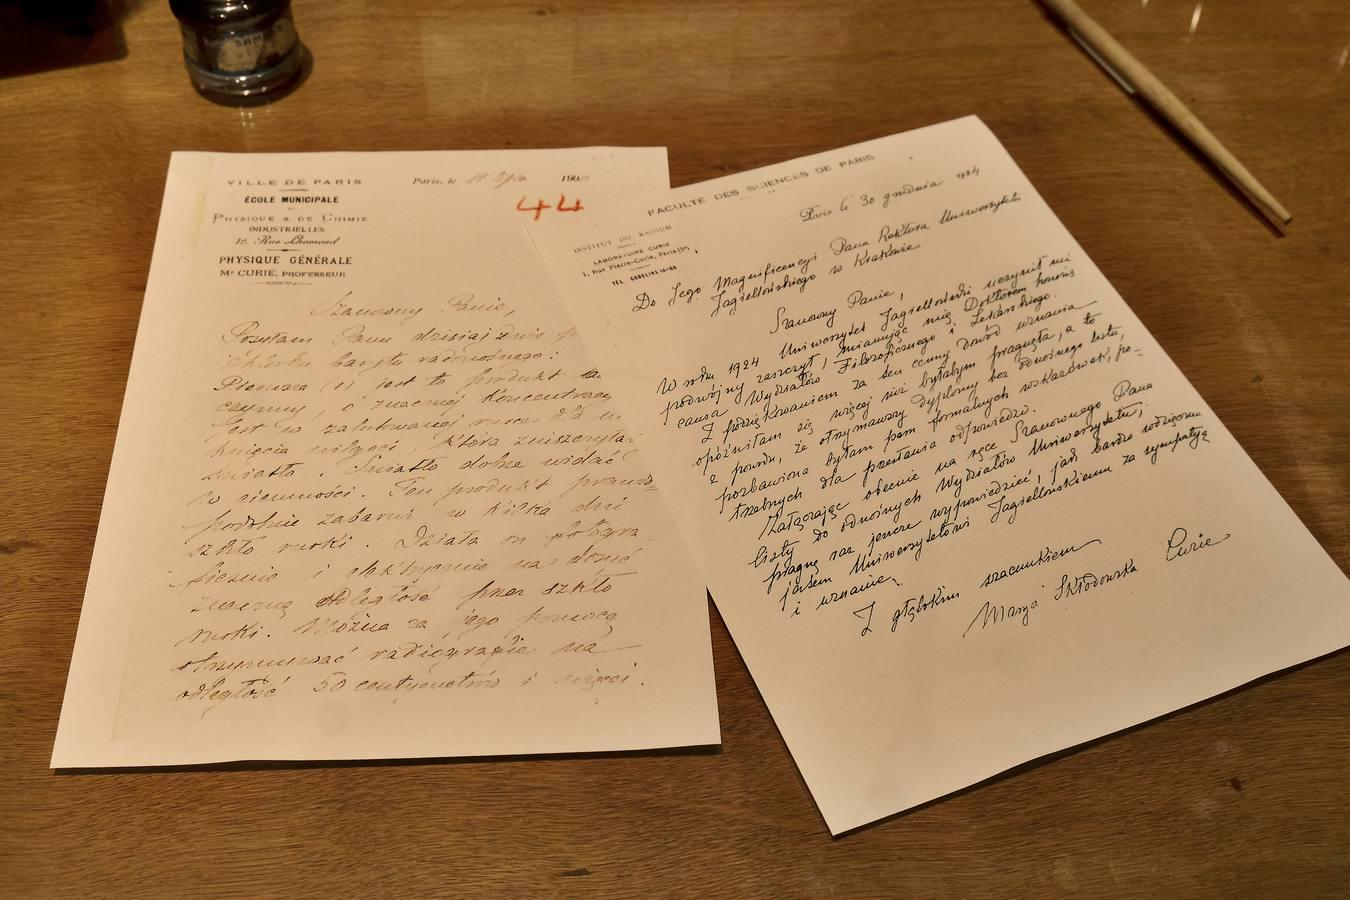 VILLE DE PARIS
ÉCOLE MUNICIPALE
PHYSIQUE & DE CHIMIE
INDUSTRIELLES
42, Rue Lhomond
PHYSIQUE GÉNÉRALE
Mr CURIE, PROFESSEUR
Paris, le 190
44
Szanowny Panie,
Posyłam Panu dzisiaj dwie
chlorku barytu radonośnego:
Pierwsza (1) jest to produkt
czynny, o znacznej koncentracyi
Jest w zalutowanej rurce
wilgoci która zniszczyła
światło. Światło dobrze widać
w ciemności. Ten produkt
zabarwi w kilka dni
szkło rurki. Działa on fotogra
ficznie i elektrycznie na dosyć
znaczną odległość przez szkło
rurki. Można za jego pomocą
otrzymywać radiografie na
odległość 50 centymetrów i więcej.
FACULTÉ DES SCIENCES DE PARIS
INSTITUT DU RADIUM
LABORATOIRE CURIE
1, Rue Pierre-Curie, Paris (5e)
TEL. GOBELINS 14-69
Paris, le 30 grudnia 1924
Do Jego Magnificencyi Pana Rektora Uniwersytetu
Jagiellońskiego w Krakowie
Szanowny Panie,
W roku 1924 Uniwersytet Jagielloński uczynił mi
podwójny zaszczyt, mianując mię Doktorem honoris
causa Wydziałów Filozoficznego i Lekarskiego.
Z podziękowaniem za ten cenny dowód uznania
opóźniłam się więcej niż byłabym pragnęła, a to
z powodu, że otrzymawszy dyplomy bez odnośnego listu,
pozbawiona byłam pem formalnych wskazówek, po=
trzebnych dla przesłania odpowiedzi.
Załączając obecnie na ręce Szanownego Pana
listy do odnośnych Wydziałów Uniwersytetu,
pragnę raz jeszcze wypowiedzieć, jak bardzo wdzięczna
jestem Uniwersytetowi Jagiellońskiemu za sympatyę
i uznanie.
Z głębokim szacunkiem
Marya Skłodowska Curie